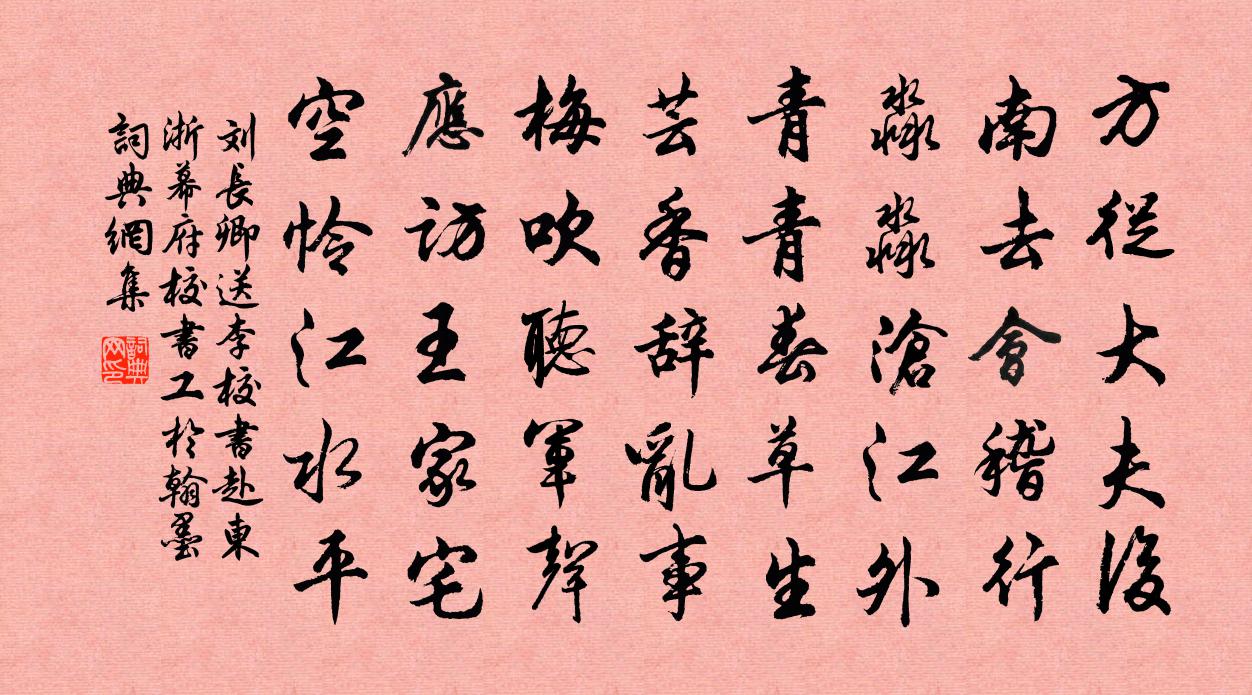 方從大夫後
南去會稽行
淼淼滄江外
青青春草生
芸香辞亂事
梅吹聽軍聲
應訪王家宅
空怜江水平
刘長卿送李校書赴東
浙幕府校書工於翰墨
詞典網集
詞典
网印